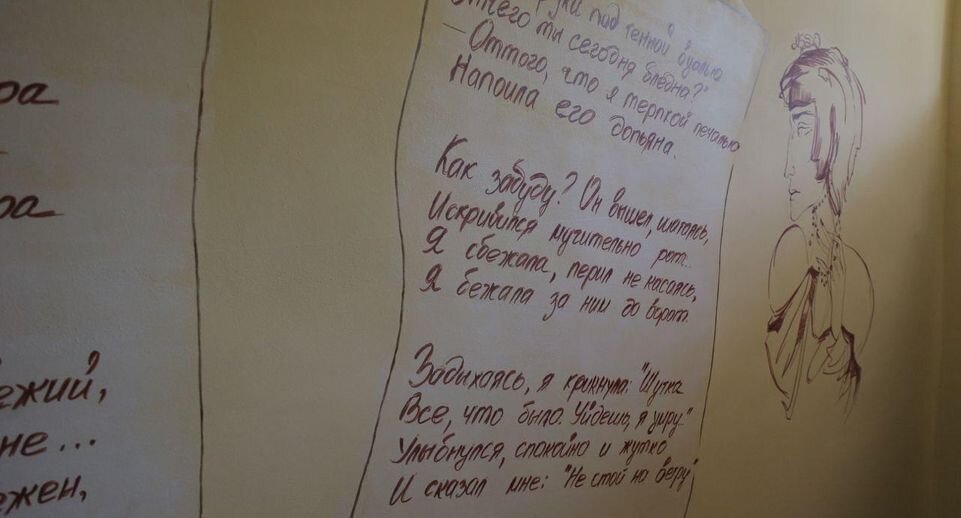 ра
ра
ежий,
не...
ежен,
руки под темной вуалью
Отчего ты сегодня бледна?"
— Оттого, что я терпкой печалью
Напоила его допьяна.
Как забуду? Он вышел, шатаясь,
Искривился мучительно рот...
Я сбежала, перил не касаясь,
Я бежала за ним до ворот.
Задыхаясь, я крикнула: "Шутка
Все, что было. Уйдешь, я умру."
Улыбнулся, спокойно и жутко
И сказал мне: "Не стой на ветру"